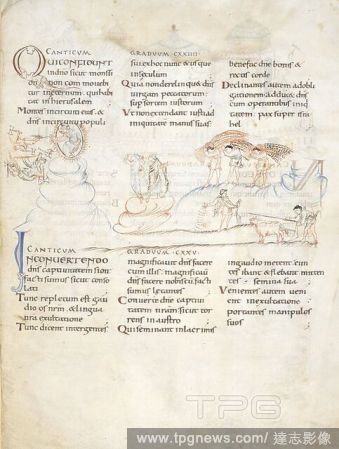 CANTICUM
QUICONFIDUNT
indño sicut mons sion
non commovebi
tur inæternum. quihabi
tat inhierusalem
Montes incircuitu eius. &
dñs incircuitu populi
GRADUUM CXXIIII
sui exhoc nunc & usque
inseculum
Quia nonderelinqu& dñs
virgam peccatorum.
supsortem iustorum
Ut nonextendant iusti ad
iniquitatem manus suas.
benefac dñe bonis &
rectis corde
Declinantes autem adobli
gationem. adduc& dñs
cum operantibus iniqui
tatem pax super isra
hel
CANTICUM
INCONVERTENDO
dñs captivitatem sion
facti sumus sicut conso
lati
Tunc repletum est gau
dio os nrm. & lingua
nra exultatione
Tunc dicent intergentes.
GRADUUM CXXV
magnificavit dñs facere
cum illis. magnificavit
dñs facere nobiscum facti
sumus l&antes
Converte dñe captivi
tatem nram sicut tor
rens inaustro
Qui seminant inlacrimis
ingaudio metent. eun
tes ibant & flebant mitten
tes semina sua
Venientes autem veni
ent inexultatione
portantes manipulos
suos
TPG
www.tpgnews.com/達志影像